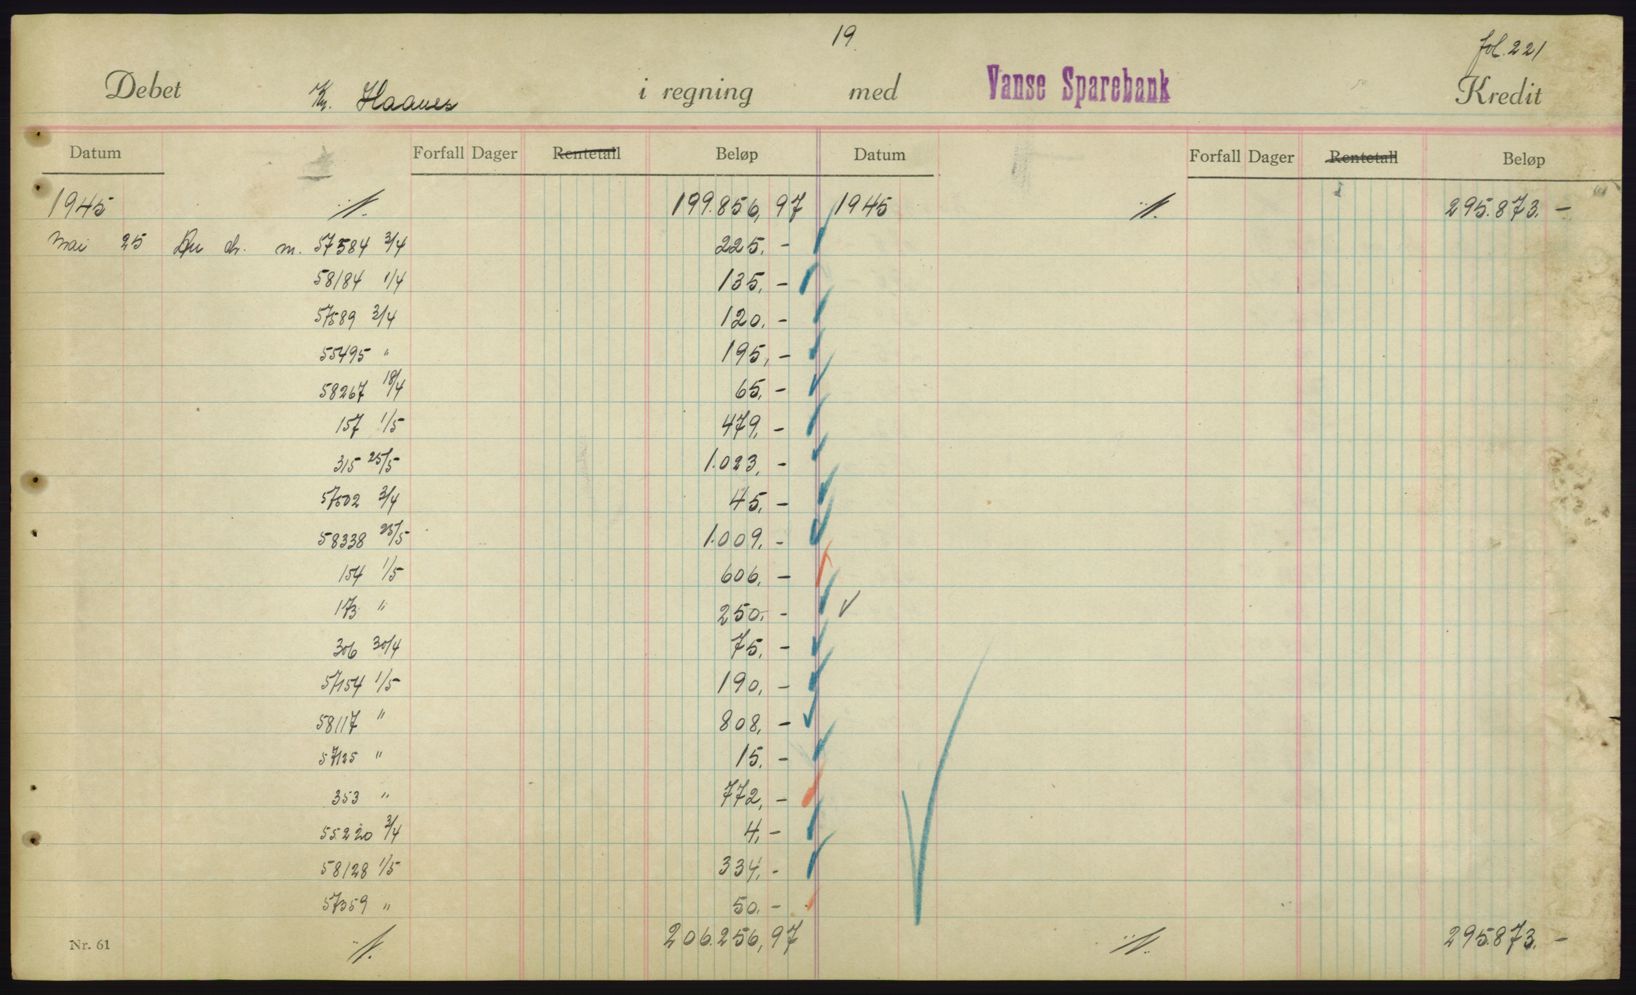 19
fol. 221
Debet Kr. Haanes i regning med Vanse Sparebank Kredit
Datum Forfall Dager Rentetall Beløp Datum Forfall Dager Rentetall Beløp
1945 199.856,97 1945 295.873. -
Mai 25 m. 57584 3/4 225. -
58184 1/4 135. -
57589 3/4 120. -
55495 " 195. -
58267 18/4 65. -
157 1/5 479. -
315 25/5 1.023. -
57502 3/4 45. -
58338 25/5 1.009. -
154 1/5 606. -
173 " 250. -
306 30/4 75. -
57154 1/5 190. -
58117 " 808. -
57125 " 15. -
353 " 772. -
55220 3/4 4. -
58128 1/5 334. -
57359 " 50. -
Nr. 61 206.256,97 295.873. -